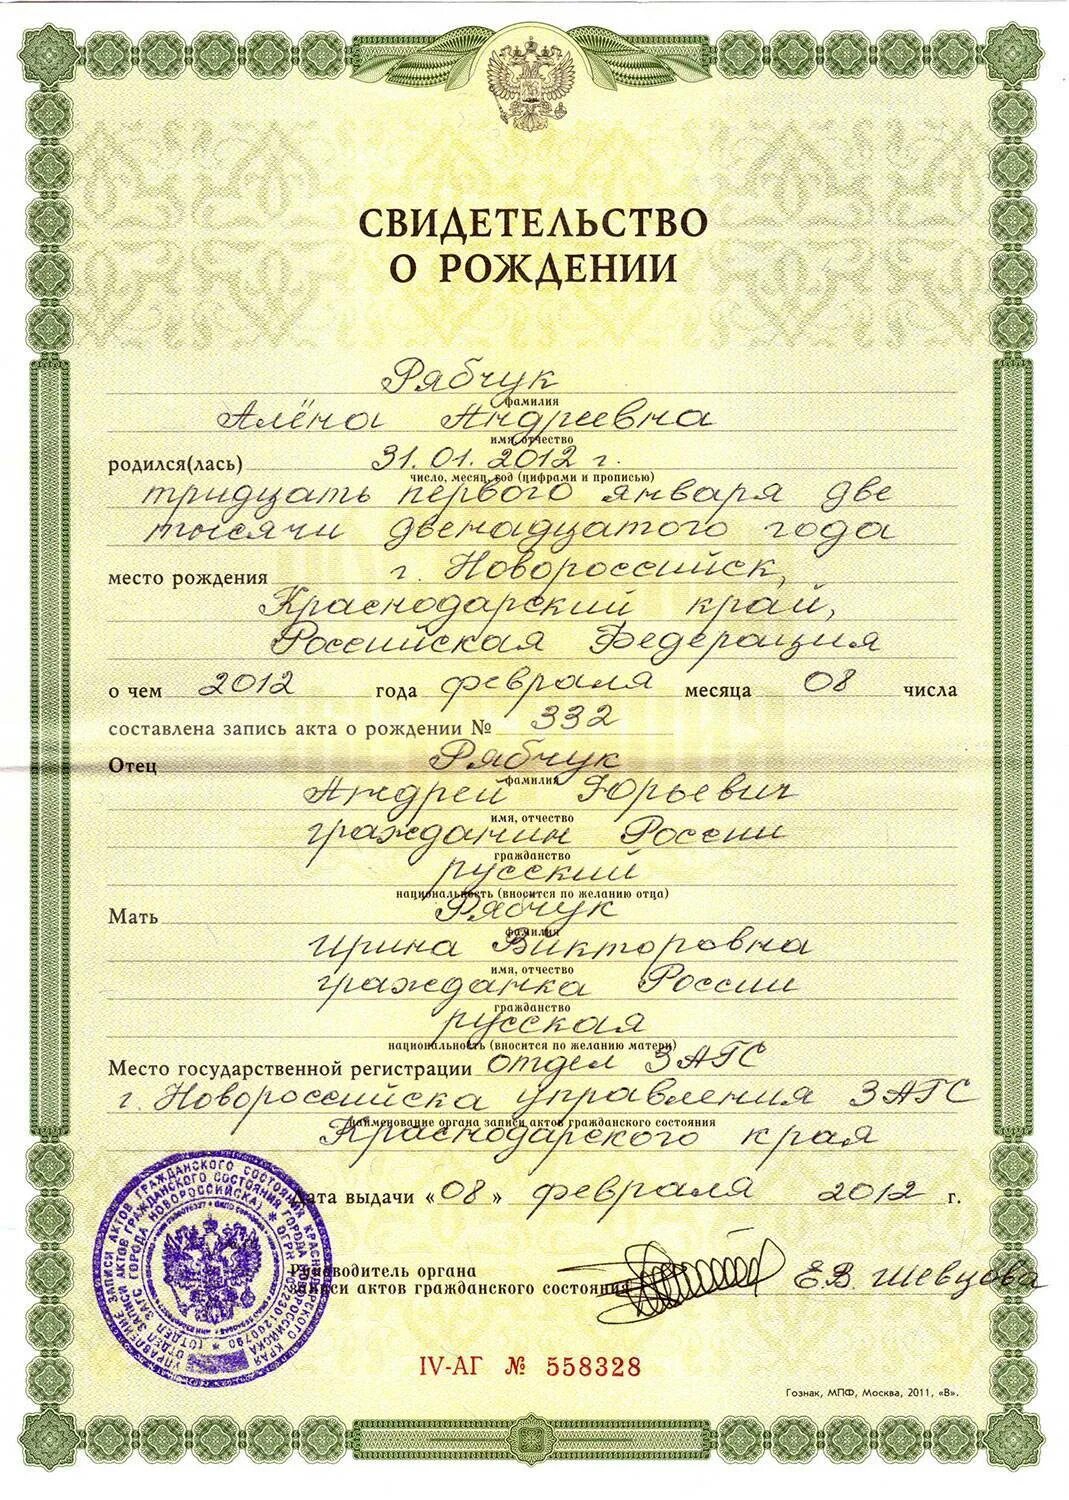 СВИДЕТЕЛЬСТВО
О РОЖДЕНИИ
Рябчук
фамилия
Алёна Андреевна
имя, отчество
родился(лась) 31.01.2012 г.
число, месяц, год (цифрами и прописью)
тридцать первого января две
тысячи двенадцатого года
место рождения г. Новороссийск,
Краснодарский край,
Российская Федерация
о чем 2012 года февраля месяца 08 числа
составлена запись акта о рождении № 332
Отец Рябчук
фамилия
Андрей Юрьевич
имя, отчество
гражданин России
гражданство
русский
национальность (вносится по желанию отца)
Мать Рябчук
фамилия
Ирина Викторовна
имя, отчество
гражданка России
гражданство
русская
национальность (вносится по желанию матери)
Место государственной регистрации отдел ЗАГС
г. Новороссийска управления ЗАГС
наименование органа записи актов гражданского состояния
Краснодарского края
Дата выдачи «08» февраля 2012 г.
Руководитель органа
записи актов гражданского состояния Е.В. Шевцова
IV-АГ № 558328
Гознак, МПФ, Москва, 2011, «В».